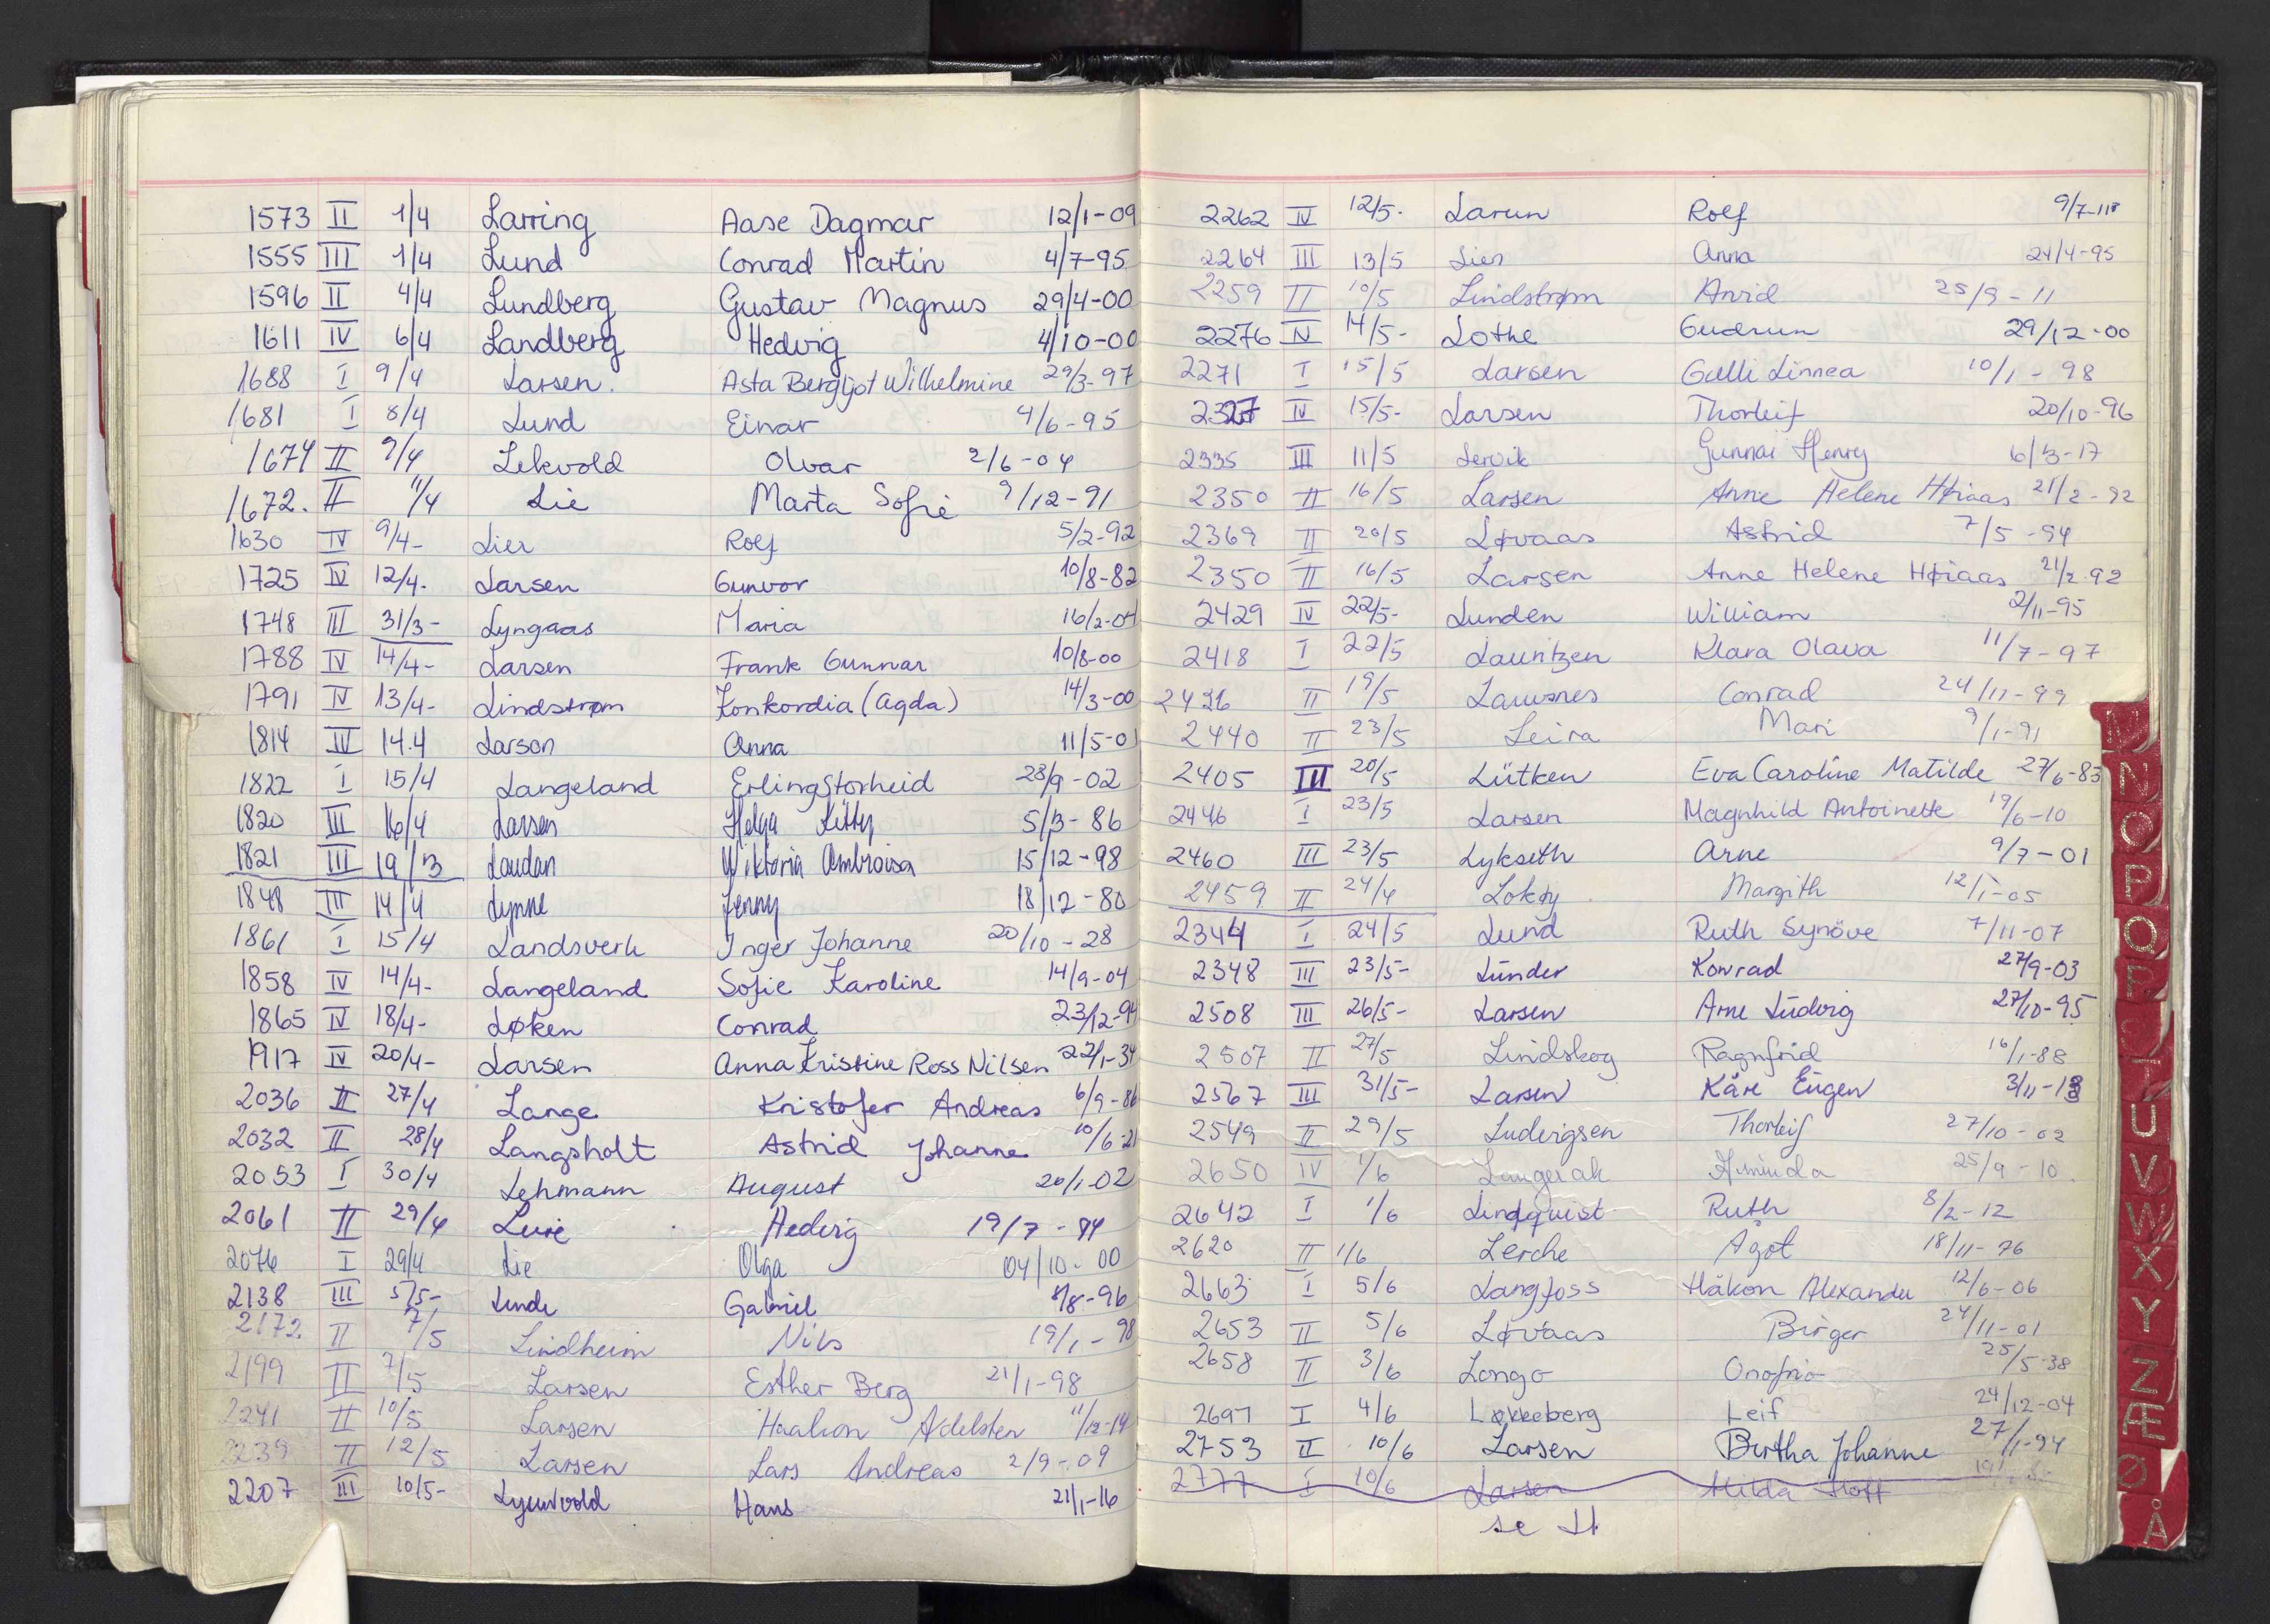 1573 II 1/4 Larring Aase Dagmar 12/1-09
1555 III 1/4 Lund Conrad Martin 4/7-95
1596 II 4/4 Lundberg Gustav Magnus 29/4-00
1611 IV 6/4 Landberg Hedvig 4/10-00
1688 I 9/4 Larsen. Asta Bergljot Wilhelmine 29/3-97
1681 I 8/4 Lund Einar 4/6-95
1674 II 9/4 Lekvold Olvar 2/6-04
1672. II 11/4 Lie Marta Sofie 9/12-91
1630 IV 9/4- Lier Rolf 5/2-92
1725 IV 12/4. Larsen Gunvor 10/8-82
1748 III 31/3- Lyngaas Maria 16/2-04
1788 IV 14/4- Larsen Frank Gunnar 10/8-00
1791 IV 13/4- Lindstrøm Konkordia (Agda) 14/3-00
1814 IV 14.4 Larson Anna 11/5-01
1822 I 15/4 Langeland Erling Storheid 28/9-02
1820 III 16/4 Larsen Helga Kitty 5/3-86
1821 III 19/3 Laudan Wiktoria Ambroisa 15/12-98
1848 III 14/4 Lynne Jenny 18/12-80
1861 I 15/4 Landsverk Inger Johanne 20/10-28
1858 IV 14/4- Langeland Sofie Karoline 14/9-04
1865 IV 18/4- Løken Conrad 23/12-94
1917 IV 20/4- Larsen Anna Kristine Ross Nilsen 22/1-34
2036 II 27/4 Lange Kristofer Andreas 6/9-86
2032 II 28/4 Langsholt Astrid Johanne 10/6-21
2053 I 30/4 Lehmann August 20/1-02
2061 II 29/4 Luie Hedvig 19/7-94
2076 I 29/4 Lie Olga 04/10-00
2138 III 5/5- Linde Gabriel 8/8-96
2172. II 7/5 Lindheim Nils 19/1-98
2199 II 7/5 Larsen Esther Berg 21/1-98
2241 II 10/5 Larsen Haakon Adelsten 11/12-14
2239 II 12/5 Larsen Lars Andreas 2/9-09
2207 III 10/5- Lyumvold Hans 21/1-16
2262 IV 12/5- Larun Rolf 9/7-11
2264 III 13/5 Lier Anna 24/4-95
2259 II 10/5 Lindstrøm Arvid 25/9-11
2276 IV 14/5- Lothe Gudrun 29/12-00
2271 I 15/5 Larsen Gulli Linnea 10/1-98
2327 IV 15/5- Larsen Thorleif 20/10-96
2335 III 11/5 Lervik Gunnar Henry 6/3-17
2350 II 16/5 Larsen Anne Helene Høiaas 21/2-92
2369 II 20/5 Løvaas Astrid 7/5-94
2350 II 16/5 Larsen Anne Helene Høiaas 21/2-92
2429 IV 22/5- Lunden William 2/11-95
2418 I 22/5 Lauritzen Klara Olava 11/7-97
2426 II 19/5 Laurnes Conrad 24/11-99
2440 II 23/5 Leira Mari 9/1-91
2405 III 20/5 Lütken Eva Caroline Matilde 27/6-83
2446 I 23/5 Larsen Magnhild Antoinette 19/6-10
2460 III 23/5 Lykseth Arne 9/7-01
2459 II 24/4 Lokøy Margith 12/1-05
2344 I 24/5 Lund Ruth Synöve 7/11-07
2348 III 23/5- Lunder Konrad 27/9-03
2508 III 26/5- Larsen Arne Ludvig 27/10-95
2507 II 27/5 Lindskog Ragnfrid 16/1-88
2567 III 31/5- Larsen Kåre Eugen 3/11-13
2549 II 29/5 Ludvigsen Thorleif 27/10-02
2650 IV 1/6 Langerak Aminda 25/9-10.
2642 I 1/6 Lindquist Ruth 8/2-12
2620 II 1/6 Lerche Ågot 18/11-76
2663 I 5/6 Langfoss Håkon Alexander 12/6-06
2653 II 5/6 Løvaas Birger 24/11-01
2658 II 3/6 Longo Onofrio 25/5-38
2697 I 4/6 Løkkeberg Leif 24/12-04
2753 II 10/6 Larsen Birtha Johanne 27/1-94
2777 I 10/6 Larsen Milda Hoff
se H
M
N
O
P
Q
R
S
T
U
V
W
X
Y
Z
Æ
Ø
Å